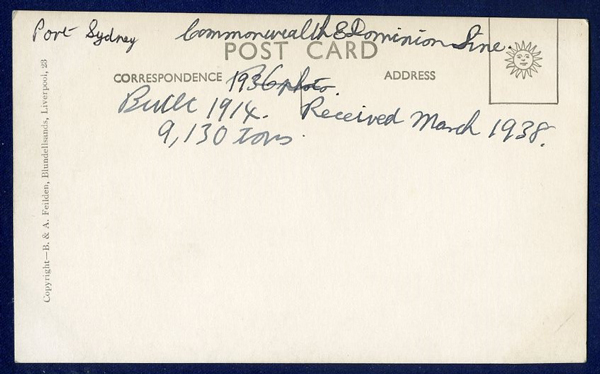 Port Sydney Commonwealth & Dominion Line.
POST CARD
CORRESPONDENCE ADDRESS
1936 photo.
Built 1914. Received March 1938.
9,130 tons
Copyright—B. & A. Feilden, Blundellsands, Liverpool, 23